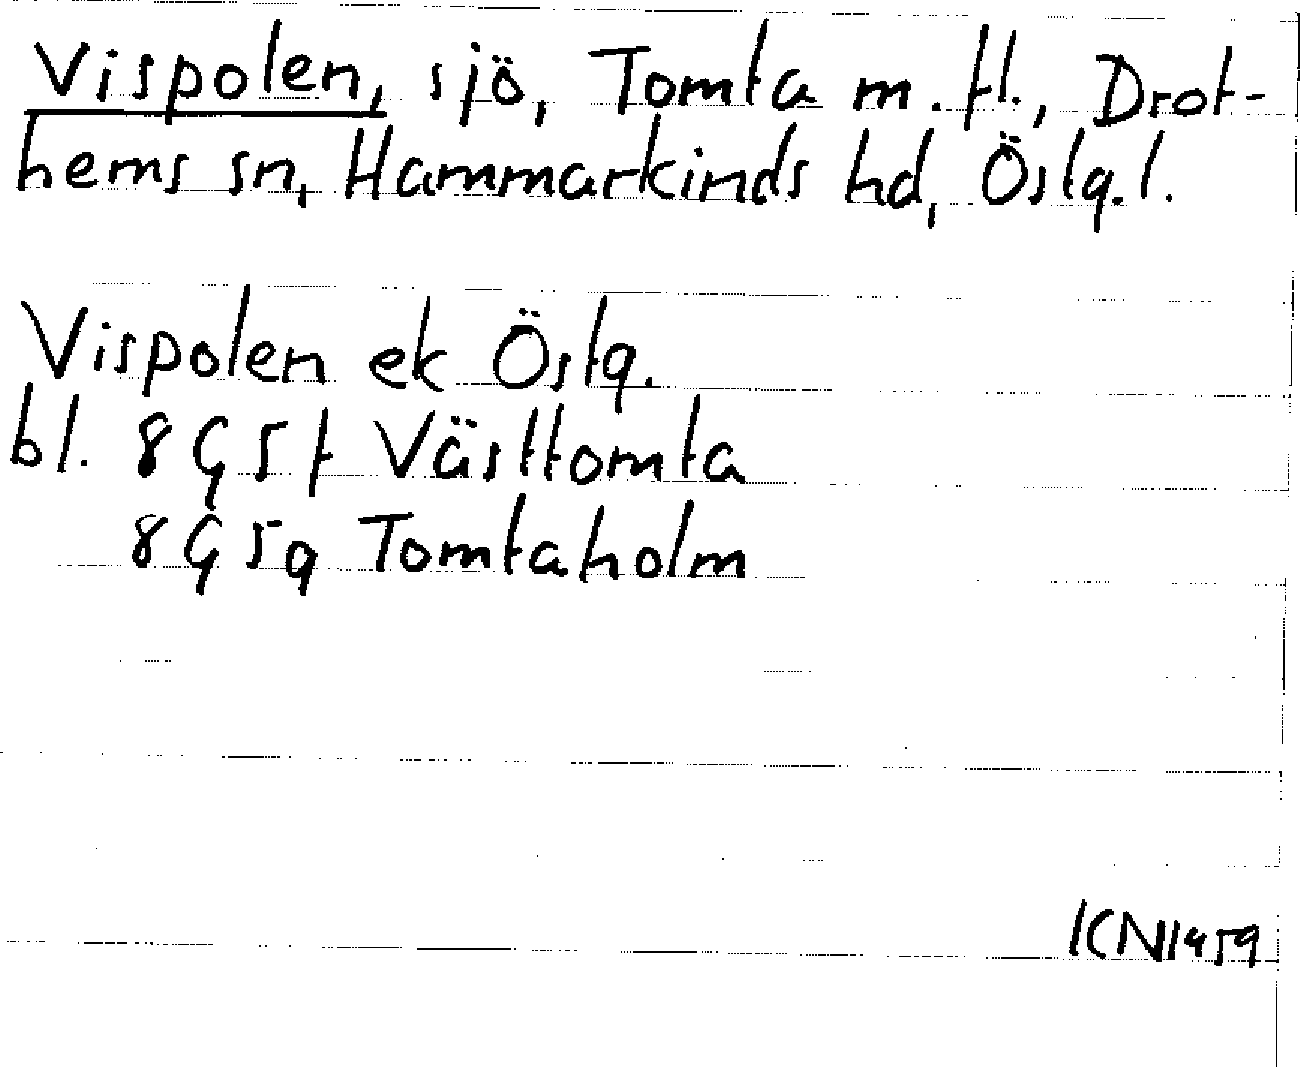 Vispolen, sjö, Tomta m. fl., Drot-
hems sn, Hammarkinds hd, Östg. l.
Vispolen ek Östg.
bl. 8G5f Västtomta
8G5g Tomtaholm
KN1959